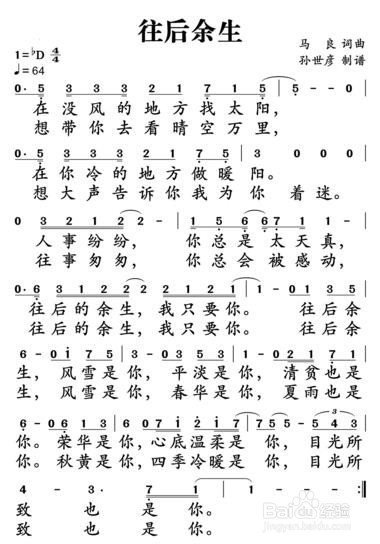 往后余生
1=♭D 4/4
♩=64
马 良 词曲
孙世彦 制谱
0· 5 3 3 3 2 1 7 1 5 | 5 - - 0 |
在 没 风 的 地 方 找 太 阳，
想 带 你 去 看 晴 空 万 里，
0· 5 3 3 3 2 1 7 1 5 | 3 0 0 0 |
在 你 冷 的 地 方 做 暖 阳。
想 大 声 告 诉 你 我 为 你 着 迷。
0 3 2 1 2 2 - | 1 5 6 6 7 1 7 |
人 事 纷 纷， 你 总 是 太 天 真，
往 事 匆 匆， 你 总 会 被 感 动，
0· 6 3 1 2 2 · 2 1 2 1 | 1 - 0 3 5 |
往 后 的 余 生，我 只 要 你。 往 后 余
往 后 的 余 生，我 只 要 你。 往 后 余
6 - 0 i 7 5 | 3 - 0 3 5 3 | 1 - 0 2 1 7 1 |
生， 风 雪 是 你， 平 淡 是 你， 清 贫 也 是
生， 风 雪 是 你， 春 华 是 你， 夏 雨 也 是
你。荣 华 是 你，心 底 温 柔 是 你，目 光 所
你。秋 黄 是 你，四 季 冷 暖 是 你，目 光 所
4 - 3· 7 1 | 1 - - - :||
致 也 是 你。
致 也 是 你。
Baidu经验
jingyan.baidu.com